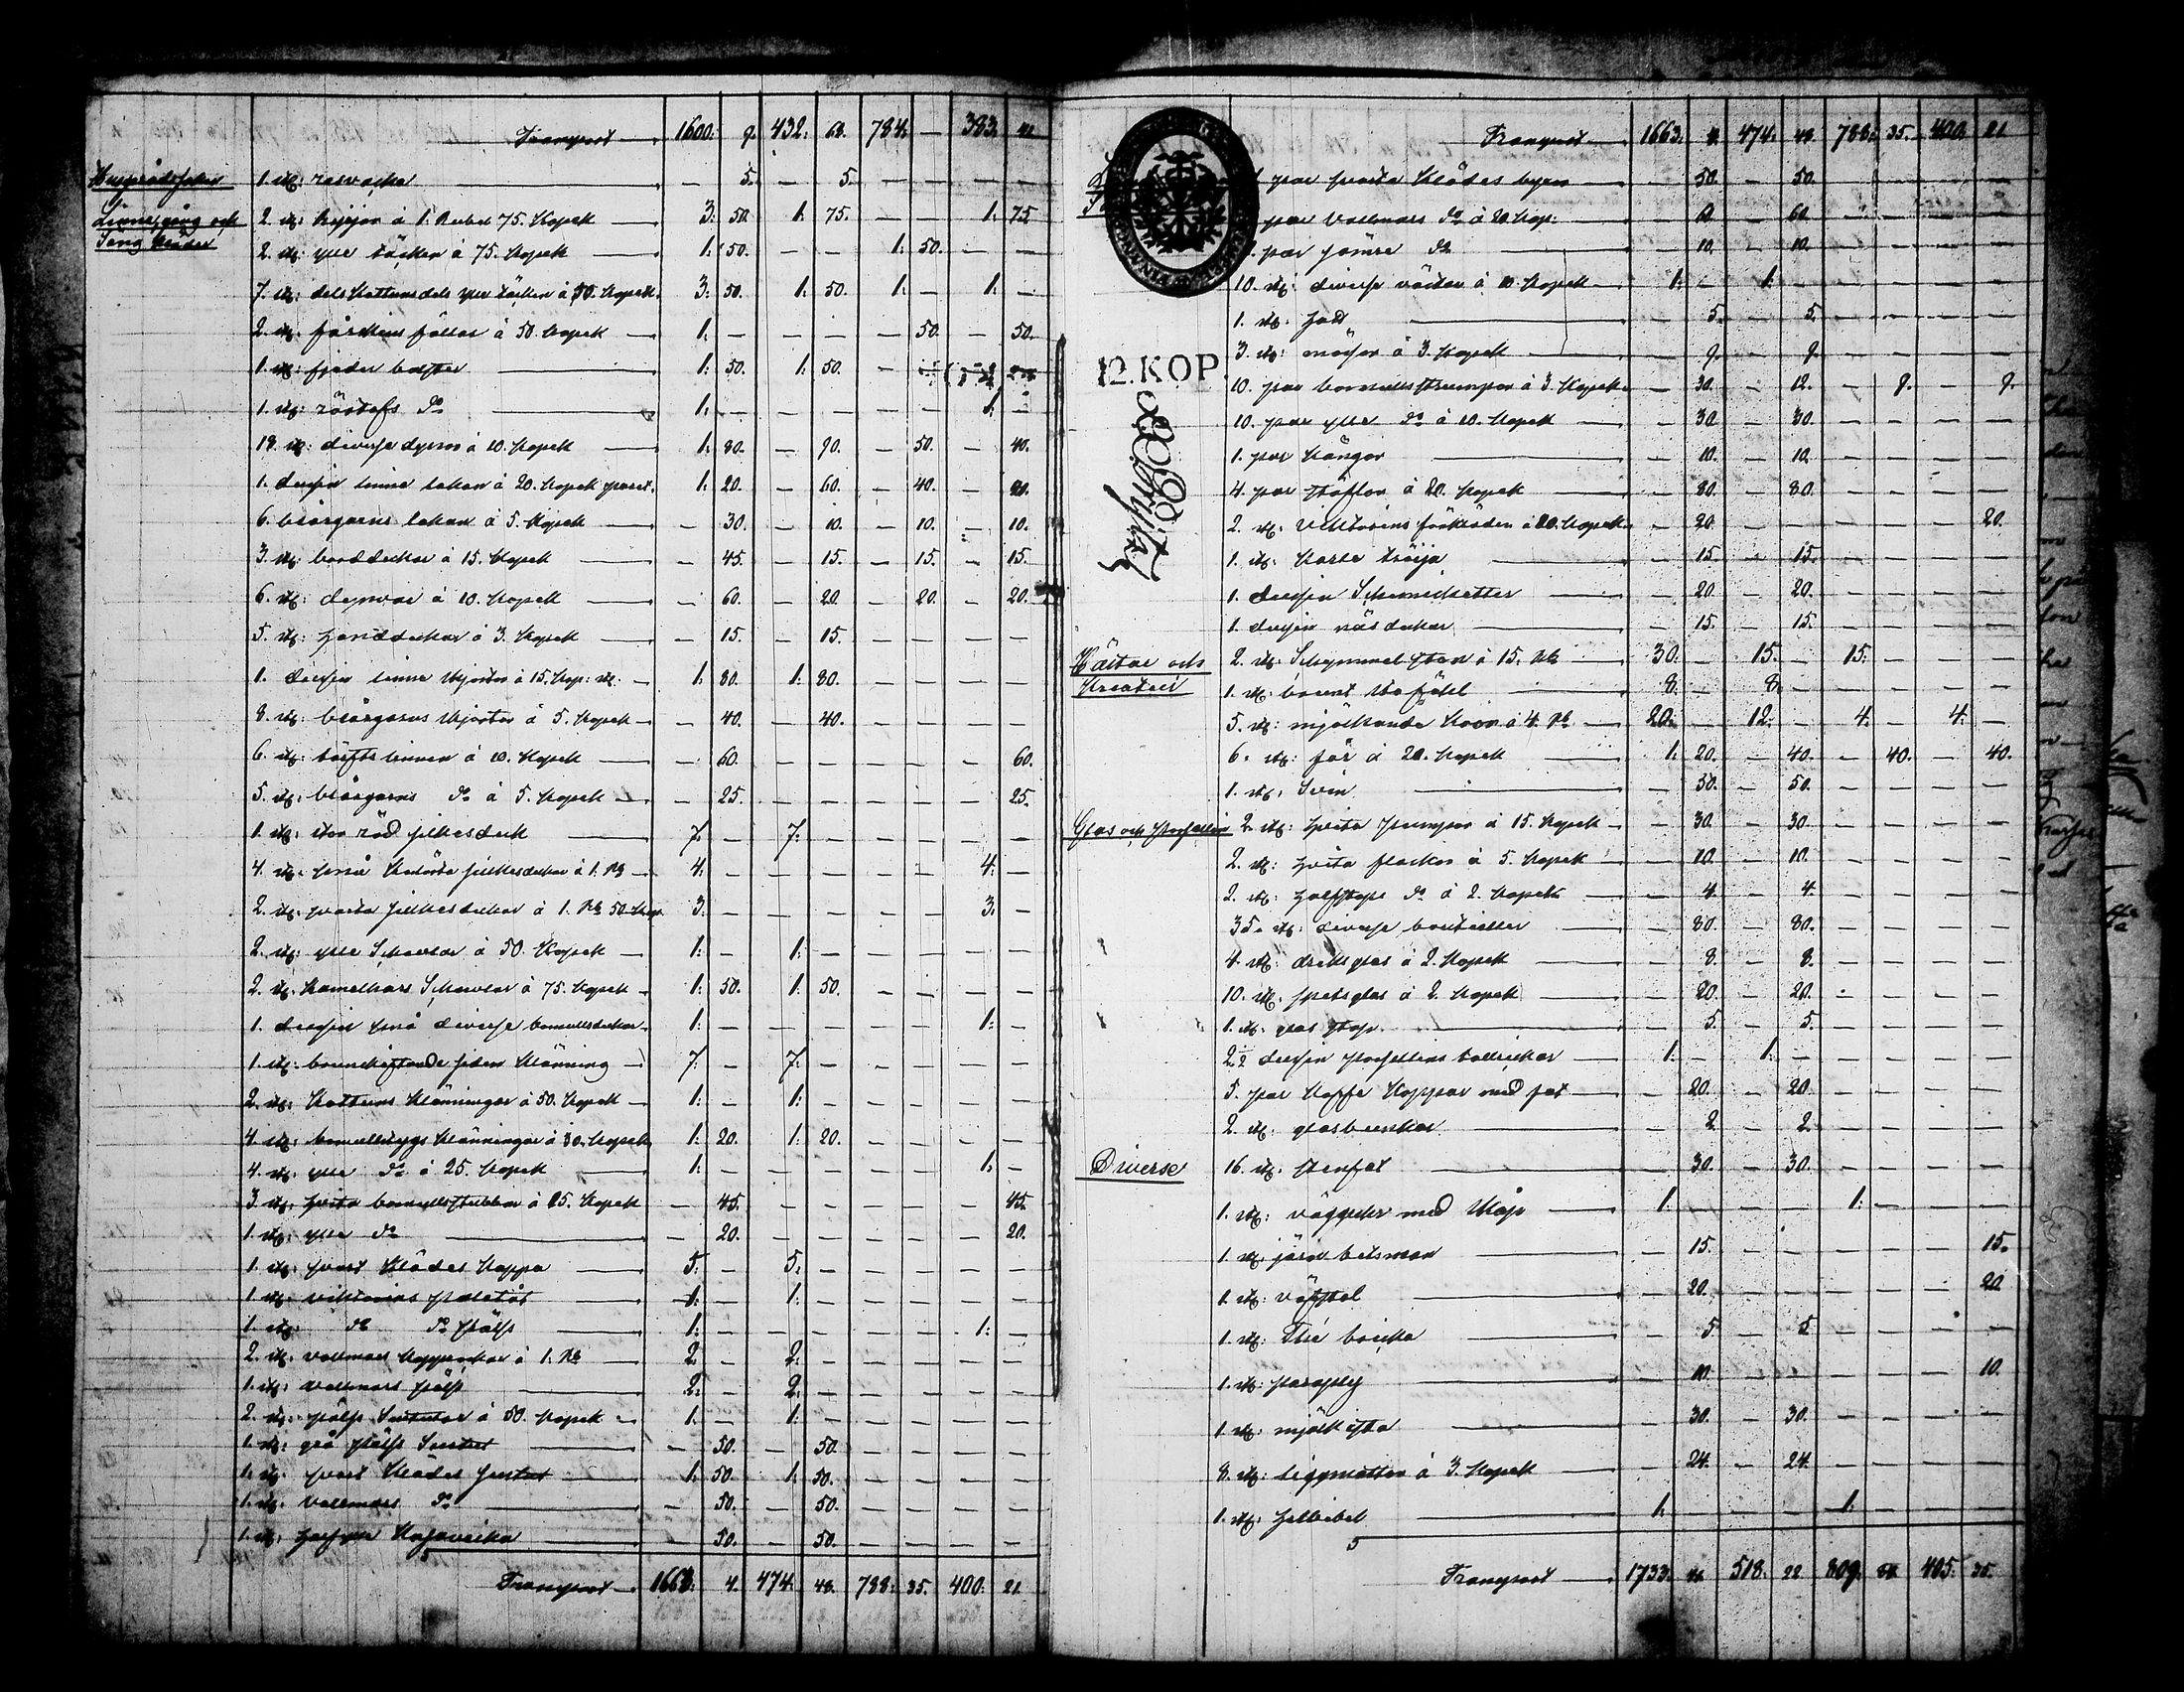 Transport 1600: 9. 432: 68. 784. — 383. 41
Husgerådssaker 1. st: resväska — 5. — 5. — — — —
Linne, gång och 2. st: ryijor à 1. Rubel 75. Kopek 3: 50. 1. 75. — — 1. 75
Säng kläder 2. st: ylle täcken à 75. Kopek 1: 50. — — 1. 50. — —
7. st: dels Kattuns dels ylle täcken à 50. Kopek 3: 50. 1: 50. 1: — 1: —
2. st: fårskins fällar à 50. Kopek 1: — — — — 50. — 50.
1. st: fjeder bolster 1: 50. 1: 50. —
1. st: d:o 1: — — — — — 1: —
18. st: diverse dynor à 10. Kopek 1: 80. — 90. — 50. — 40.
1. dussin linne lakan à 20. Kopek paret. 1: 20. — 60. — 40. — 20.
6. blårgarns lakan à 5. Kopek — 30. — 10. — 10. — 10.
3. st: borddukar à 15. Kopek — 45. — 15. — 15. — 15.
6. st: dynvar à 10. Kopek — 60. — 20. — 20. — 20.
5. st: handdukar à 3. Kopek — 15. — 15. — — — —
1. dussin linne skjortor à 15. Kop: st: 1: 80. 1: 80. — — — —
8. st: blårgarns skjortor à 5. Kopek — 40. — 40. — — — —
6. st: linnen à 10. Kopek — 60. — — — — — 60.
5. st: blårgarns d:o à 5. Kopek — 25. — — — — — 25.
1. st: stor röd silkesduk 7. — 7. — — — — —
4. st: små silkesdukar à 1. Rb 4. — — — — — 4. —
2. st: svarta silkesdukar à 1. Rb 50 Kop 3. — — — — — 3. —
2. st: ylle Schavlar à 50. Kopek 1: — 1: — — — — —
2. st: Kamelhårs Schavlar à 75. Kopek 1: 50. 1: 50. — — — —
1. dussin små diverse bomullsdukar 1: — — — — — 1: —
1. st: brunskiftande siden klänning 7. — 7. — — — — —
2. st: Kattuns klänningar à 50. Kopek 1: — 1: — — — — —
4. st: bomullstygs klänningar à 30. Kopek 1: 20. 1: 20. — — — —
4. st: ylle d:o à 25. Kopek 1: — — — — — 1. —
3. st: hvita bomullsstubbar à 15. Kopek — 45. — — — — — 45.
1. st: ylle d:o — 20. — — — — — 20.
1. st: svart klädes kappa 5: — 5: — — — — —
1. st: viktorins paletå 1: — 1: — — — — —
1. st: d:o d:o päls 1: — — — — — 1: —
2. st: vallmars à 1. Rb 2. — 2. — — — — —
1. st: vallmars päls 2. — 2. — — — — —
2. st: päls à 50. Kopek 1. — 1. — — — — —
1. st: grå päls — 50. — 50. — — — —
1. st: svart klädes 1: 50. 1. 50. — — — —
1. st: vallmars d:o — 50. — 50. — — — —
1. st: halfylle Kasaveika — 50. — 50. — — — —
Transport 1663: 4. 474: 48. 788: 35. 400: 21.
Transport 1663: 4. 474: 48. 788: 35. 400: 21
par svarta klädes byxor — 50. — 50. — — — —
par vallmars d:o à 20. Kop: — 60. — 60. — — — —
par sämre d:o — 10. — 10. — — — —
10. st: diverse västar à 10. Kopek 1: — 1. — — — — —
12. KOP.
1. st: hatt — 5. — 5. — — — —
3. st: mössor à 3. Kopek — 9. — 9. — — — —
10. par bomullsstrumpor à 3. Kopek — 30. — 12. — 9. — 9.
10. par ylle d:o à 10. Kopek — 30. — 30. — — — —
1. par kängor — 10. — 10. — — — —
4. par stöflor à 20. Kopek — 80. — 80. — — — —
2. st: viktorins förkläden à 10. Kopek — 20. — — — — — 20.
1. st: tröija — 15. — 15. — — — —
1. dussin Schemisetter — 20. — 20. — — — —
1. dussin näsdukar — 15. — 15. — — — —
Hästar och 2. st: Skymmel ston à 15. Rb 30. — 15. — 15. — — —
Kreatur 1. st: brunt stoföhl 8. — 8. — — — — —
5. st: mjölkande Koor à 4. Rb 20. — 12. — 4. — 4. —
6. st: får à 20. Kopek 1. 20. — 40. — 40. — 40.
1. st: Svin — 50. — 50. — — — —
Glas och Porsellin 2. st: hvita à 15. Kopek — 30. — 30. — — — —
2. st: hvita flaskor à 5. Kopek — 10. — 10. — — — —
2. st: halfstops d:o à 2. Kopek — 4. — 4. — — — —
35. st: diverse bouteiller — 80. — 80. — — — —
4. st: dricksglas à 2. Kopek — 8. — 8. — — — —
10. st: spetsglas à 2. Kopek — 20. — 20. — — — —
1. st: glas stop — 5. — 5. — — — —
2½ dussin porsellins tallrickar 1: — 1. — — — — —
5. par Kaffe Koppar med fat — 20. — 20. — — — —
2. st: glasburkar — 2. — 2. — — — —
Diverse 16. st: stenfat — 30. — 30. — — — —
1. st: väggur med skåp 1. — — — 1. — — —
1. st: järn betsman — 15. — — — — — 15.
1. st: väfstol — 20. — — — — — 20
1. st: Thé bricka — 5. — 5. — — — —
1. st: paraply — 10. — — — — — 10.
1. st: — 30. — 30. — — — —
8. st: liggmattor à 3. Kopek — 24. — 24. — — — —
1. st: husbibel 1. — — — 1. — — —
Transport 1733. 518. 22 809. 405. 35.